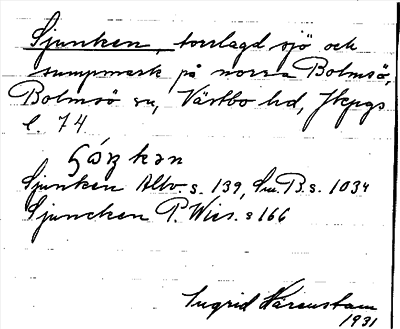 Sjunken, torrlagd sjö och
sumpmark på norra Bolmsö,
Bolmsö sn, Västbo hd, Jkpgs
l. 74
Sjunken Allv s. 139, Sm. B. s. 1034
Sjuncken P. Wies. s 166
Ingrid Härenstam
1931